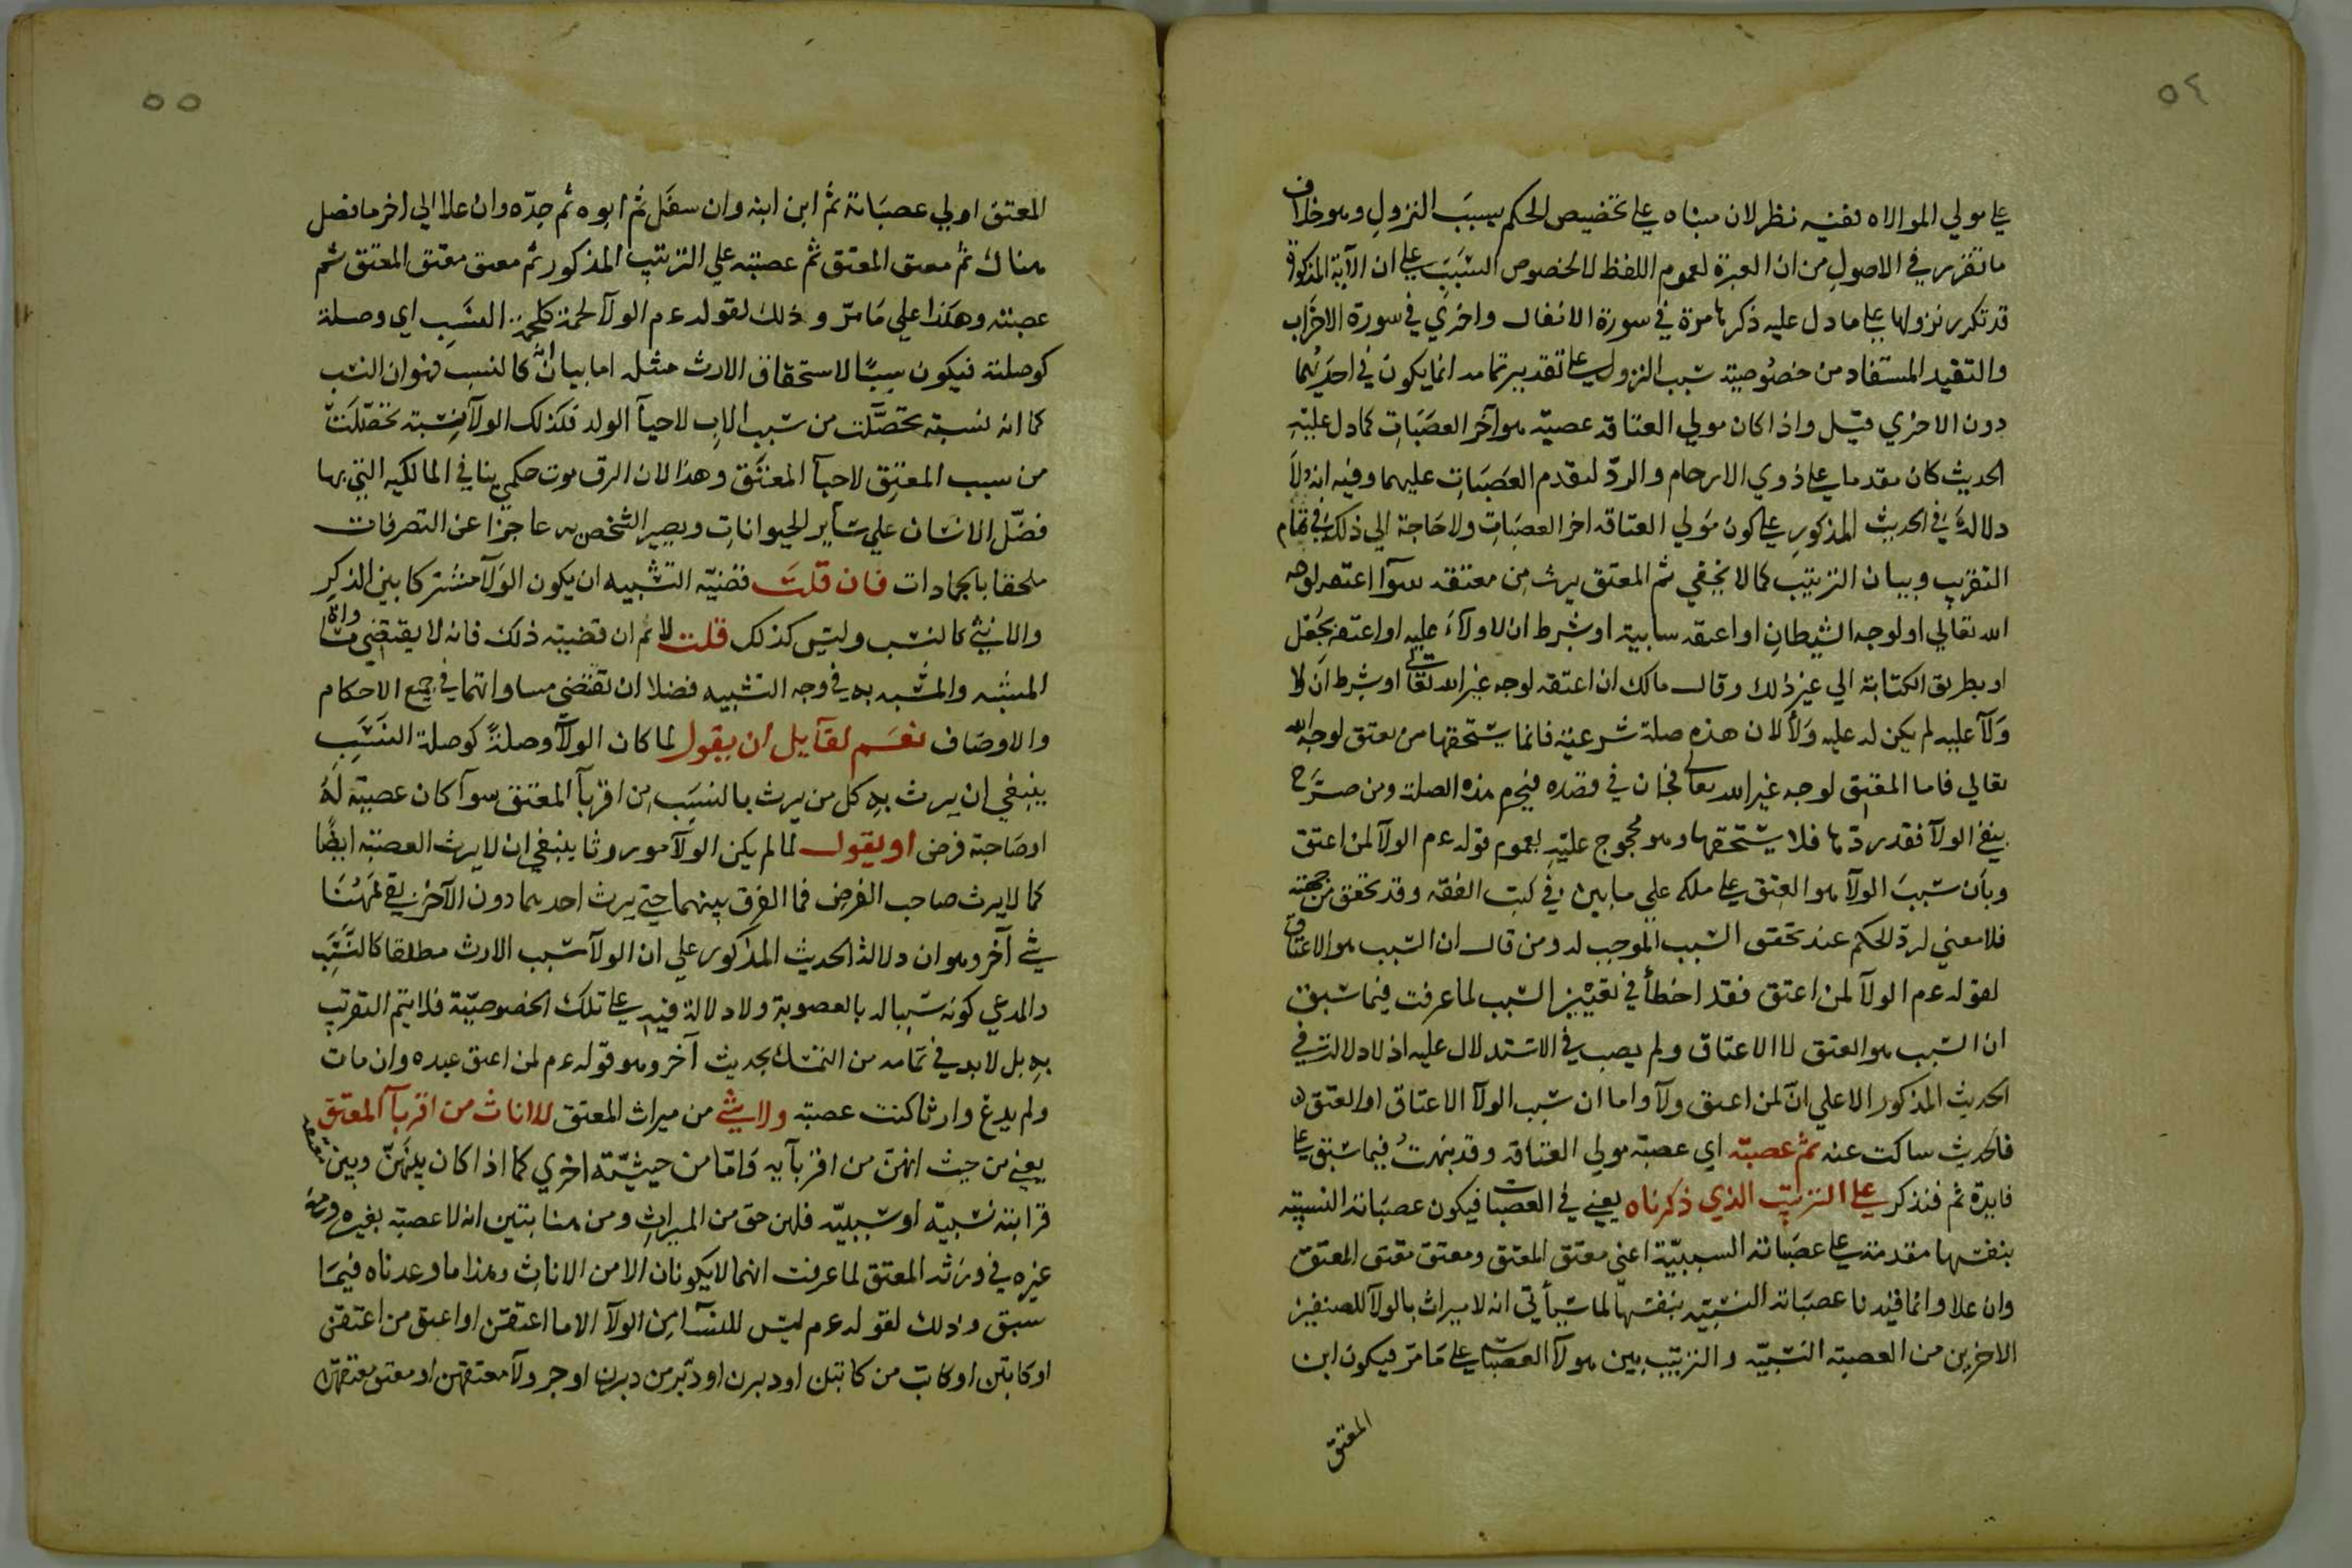 ٥٤
علي مولي الموالاه ففيه نظر لان مبناه علي تخصيص الحكم بسبب النزول وهو خلاف
ما تقرر في الاصول من ان العبرة لعموم اللفظ لا لخصوص السبب علي ان الآية المذكورة
قد تكرر نزولها علي ما دل عليه ذكرها مرة في سورة الانفال واخري في سورة الاحزاب
والتقييد المستفاد من خصوصية سبب النزول علي تقدير تمامه انما يكون في احديهما
دون الاخري قيل واذا كان مولي العتاقه عصبة هو آخر العصبات كما دل عليه
الحديث كان مقدما علي ذوي الارحام والرد لتقدم العصبات عليهما وفيه انه لا
دلالة في الحديث المذكور علي كون مولي العتاقه اخر العصبات ولا حاجة الي ذلك في تمام
التقريب وبيان الترتيب كما لا يخفي ثم المعتق يرث من معتقه سوآ اعتقه لوجه
الله تعالي او لوجه الشيطان او اعتقه سايبة او شرط ان لا ولآء عليه او اعتقه بجعل
او بطريق الكتابة الي غير ذلك وقال مالك ان اعتقه لوجه غير الله تعالي او شرط ان لا
ولآ عليه لم يكن له عليه ولآ لان هذه صلة شرعية فانما يستحقها من يعتق لوجه الله
تعالي فاما المعتق لوجه غير الله تعالي فجان في قصده فيحرم هذه الصلة ومن صرح
بنفي الولآ فقد ردها فلا يستحقها وهو محجوج عليه بعموم قوله عم الولآ لمن اعتق
وبان سبب الولآ هو العتق علي ملكه علي ما بين في كتب الفقه وقد تحقق من جهته
فلا معني لرد الحكم عند تحقق السبب الموجب له ومن قال ان السبب هو الاعتاق
لقوله عم الولآ لمن اعتق فقد اخطأ في تعيين السبب لما عرفت فيما سبق
ان السبب هو العتق لا الاعتاق ولم يصب في الاستدلال عليه اذ لا دلالة في
الحديث المذكور الا علي ان لمن اعتق ولآ واما ان سبب الولآ الاعتاق او العتق
فالحديث ساكت عنه ثم عصبته اي عصبة مولي العتاقه وقد نبهت فيما سبق علي
فايدة ثم فتذكر علي الترتيب الذي ذكرناه يعني في العصبات فيكون عصباته النسبية
بنفسها مقدمة علي عصباته السببية اعني معتق المعتق ومعتق معتق المعتق
وان علا وانما قيدنا عصباته النسبيه بنفسها لما سيأتي انه لا ميراث بالولآ للصنفين
الاخرين من العصبة النسبيه والترتيب بين هولآ العصبات علي ما مر فيكون ابن
المعتق
٥٥
المعتق اولي عصباته ثم ابن ابنه وان سفل ثم ابوه ثم جده وان علا الي اخر ما فصل
هناك ثم معتق المعتق ثم عصبته علي الترتيب المذكور ثم معتق معتق المعتق ثم
عصبته وهكذا علي ما مر وذلك لقوله عم الولآ لحمة كلحمة النسب اي وصلة
كوصلته فيكون سببا لاستحقاق الارث مثله اما بيان انه كالنسب فهو ان النسب
كما انه نسبة تحصلت من سبب الاب لاحيآ الولد فكذلك الولآ نسبة تحصلت
من سبب المعتق لاحيآ المعتق وهذا لان الرق موت حكمي ينافي المالكيه التي بها
فضل الانسان علي ساير الحيوانات ويصير الشخص به عاجزا عن التصرفات
ملحقا بالجمادات فان قلت قضية التشبيه ان يكون الولآ مشتركا بين الذكر
والانثي كالنسب وليس كذلك قلت لا ثم ان قضيته ذلك فانه لا يقتضي مساواة
المشبه والمشبه به في وجه التشبيه فضلا ان تقتضي مساواتهما في جميع الاحكام
والاوصاف نعم لقايل ان يقول لما كان الولآ وصلة كوصلة النسب
ينبغي ان يرث به كل من يرث بالنسب من اقربآ المعتق سوآ كان عصبة له
او صاحبة فرض او يقول لما لم يكن الولآ موروثا ينبغي ان لا يرث العصبة ايضا
كما لا يرث صاحب الفرض فما الفرق بينهما حتي يرث احدهما دون الآخر بقي ههنا
شي آخر وهو ان دلالة الحديث المذكور علي ان الولآ سبب الارث مطلقا كالنسب
والمدعي كونه سببا له بالعصوبة ولا دلالة فيه علي تلك الخصوصية فلا يتم التقريب
به بل لا بد في تمامه من التمسك بحديث آخر وهو قوله عم لمن اعتق عبده وان مات
ولم يدع وارثا كنت عصبته ولا شي من ميراث المعتق للاناث من اقربآ المعتق
يعني من حيث انهن من اقربآيه واما من حيثية اخري كما اذا كان بينهن وبين
قرابته نسبية او سببيه فلهن حق من الميراث ومن هنا تبين انه لا عصبة بغيره
غيره في ورثة المعتق لما عرفت انهما لا يكونان الا من الاناث وهذا ما وعدناه فيما
سبق وذلك لقوله عم ليس للنسآ من الولآ الا ما اعتقن او اعتق من اعتقن
او كاتبن او كاتب من كاتبن او دبرن او دبر من دبرن او جر ولآ معتقهن او معتق معتقهن